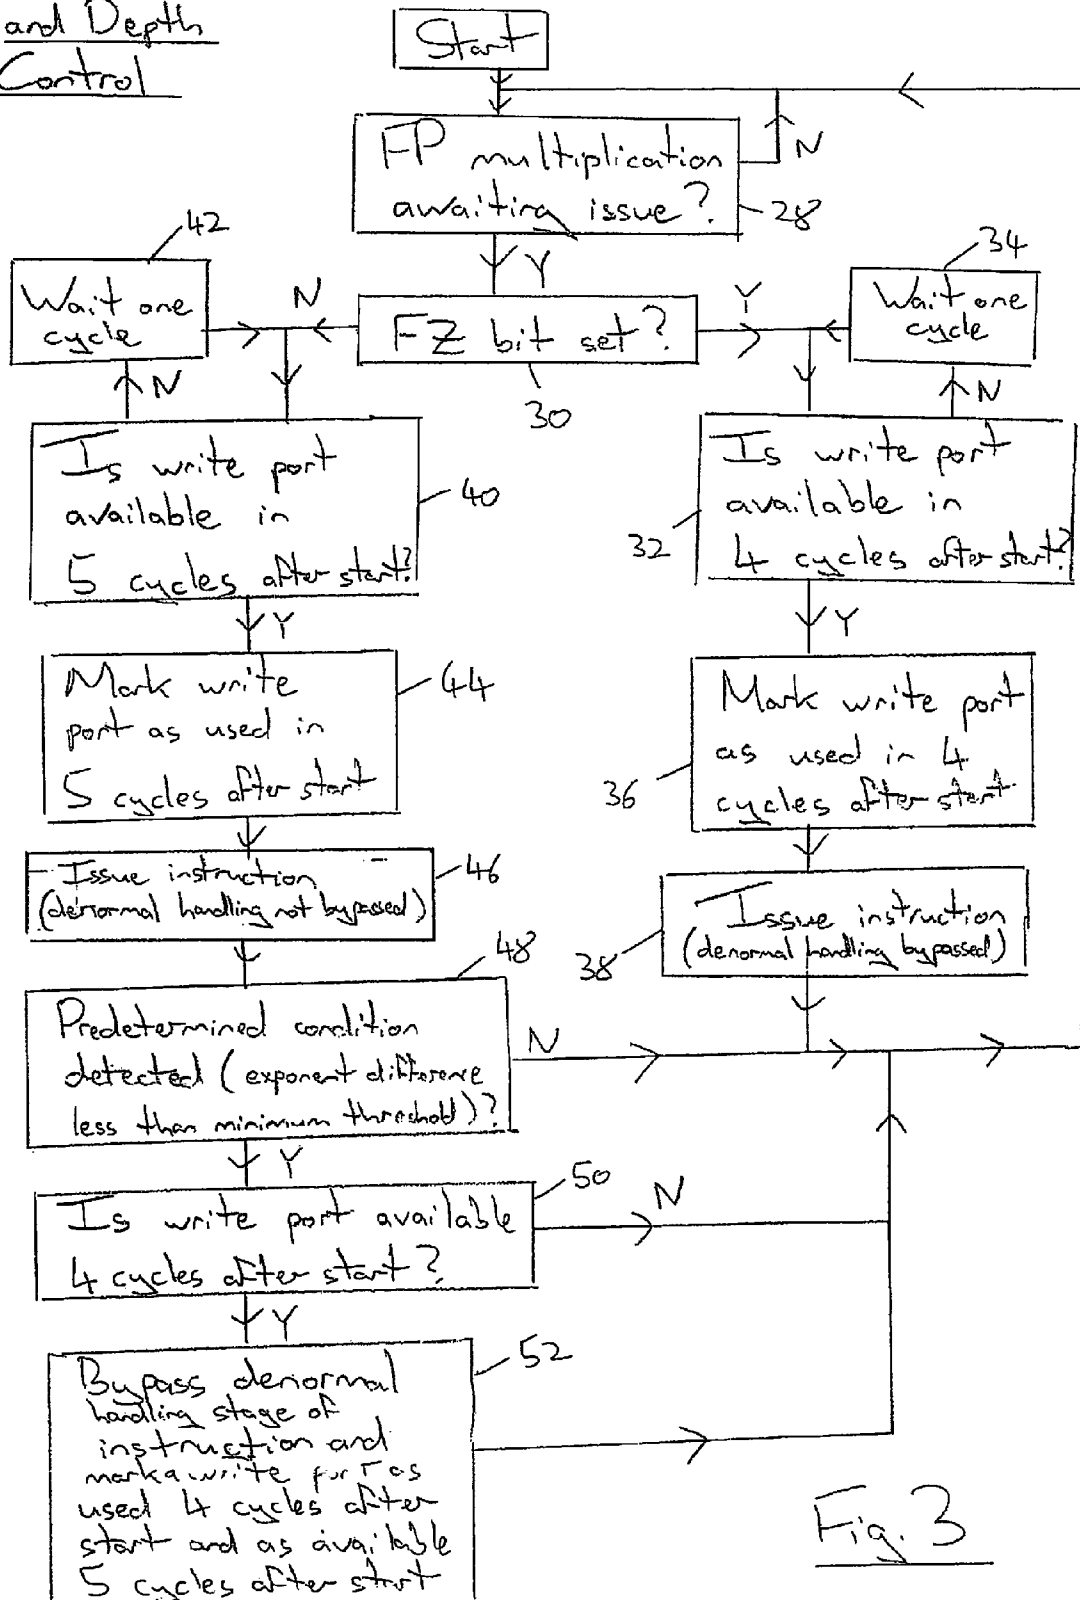 and Depth
Control
Start
FP multiplication
awaiting issue?
28
N
Y
42
34
Wait one
cycle
N
FZ bit set?
Y
Wait one
cycle
N
30
N
Is write port
available in
5 cycles after start?
40
Is write port
available in
4 cycles after start?
32
Y
Y
Mark write
port as used in
5 cycles after start
44
Mark write port
as used in 4
cycles after start
36
Issue instruction
(denormal handling not bypassed)
46
Issue instruction
(denormal handling bypassed)
38
48
Predetermined condition
detected (exponent difference
less than minimum threshold)?
N
Y
50
Is write port available
4 cycles after start?
N
Y
52
Bypass denormal
handling stage of
instruction and
mark a write port as
used 4 cycles after
start and as available
5 cycles after start
Fig. 3